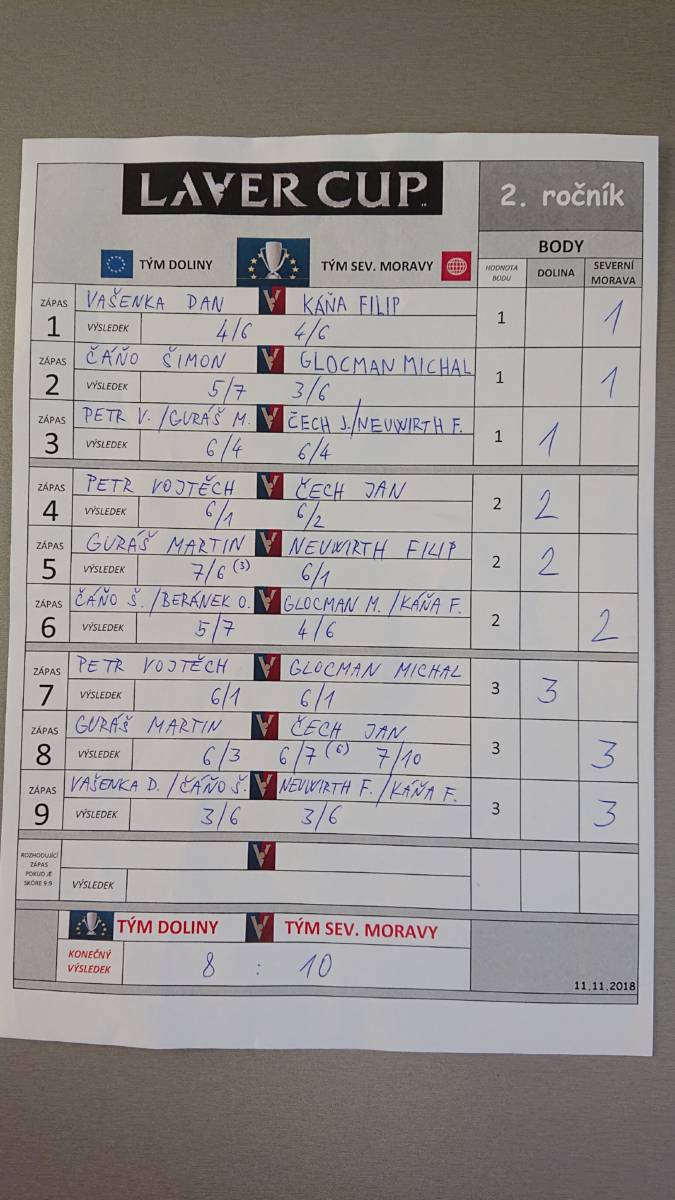 LAVER CUP
2. ročník
TÝM DOLINY TÝM SEV. MORAVY
BODY
HODNOTA BODU DOLINA SEVERNÍ MORAVA
ZÁPAS 1 VAŠENKA DAN KÁŇA FILIP
VÝSLEDEK 4/6 4/6 1 1
ZÁPAS 2 ČÁŇO ŠIMON GLOCMAN MICHAL
VÝSLEDEK 5/7 3/6 1 1
ZÁPAS 3 PETR V./GURÁŠ M. ČECH J./NEUWIRTH F.
VÝSLEDEK 6/4 6/4 1 1
ZÁPAS 4 PETR VOJTĚCH ČECH JAN
VÝSLEDEK 6/1 6/2 2 2
ZÁPAS 5 GURÁŠ MARTIN NEUWIRTH FILIP
VÝSLEDEK 7/6 (3) 6/1 2 2
ZÁPAS 6 ČÁŇO Š./BERÁNEK O. GLOCMAN M./KÁŇA F.
VÝSLEDEK 5/7 4/6 2 2
ZÁPAS 7 PETR VOJTĚCH GLOCMAN MICHAL
VÝSLEDEK 6/1 6/1 3 3
ZÁPAS 8 GURÁŠ MARTIN ČECH JAN
VÝSLEDEK 6/3 6/7 (6) 7/10 3 3
ZÁPAS 9 VAŠENKA D./ČÁŇO Š. NEUWIRTH F./KÁŇA F.
VÝSLEDEK 3/6 3/6 3 3
ROZHODUJÍCÍ
ZÁPAS
POKUD JE
SKÓRE 9:9
VÝSLEDEK
TÝM DOLINY TÝM SEV. MORAVY
KONEČNÝ VÝSLEDEK 8 : 10
11.11.2018